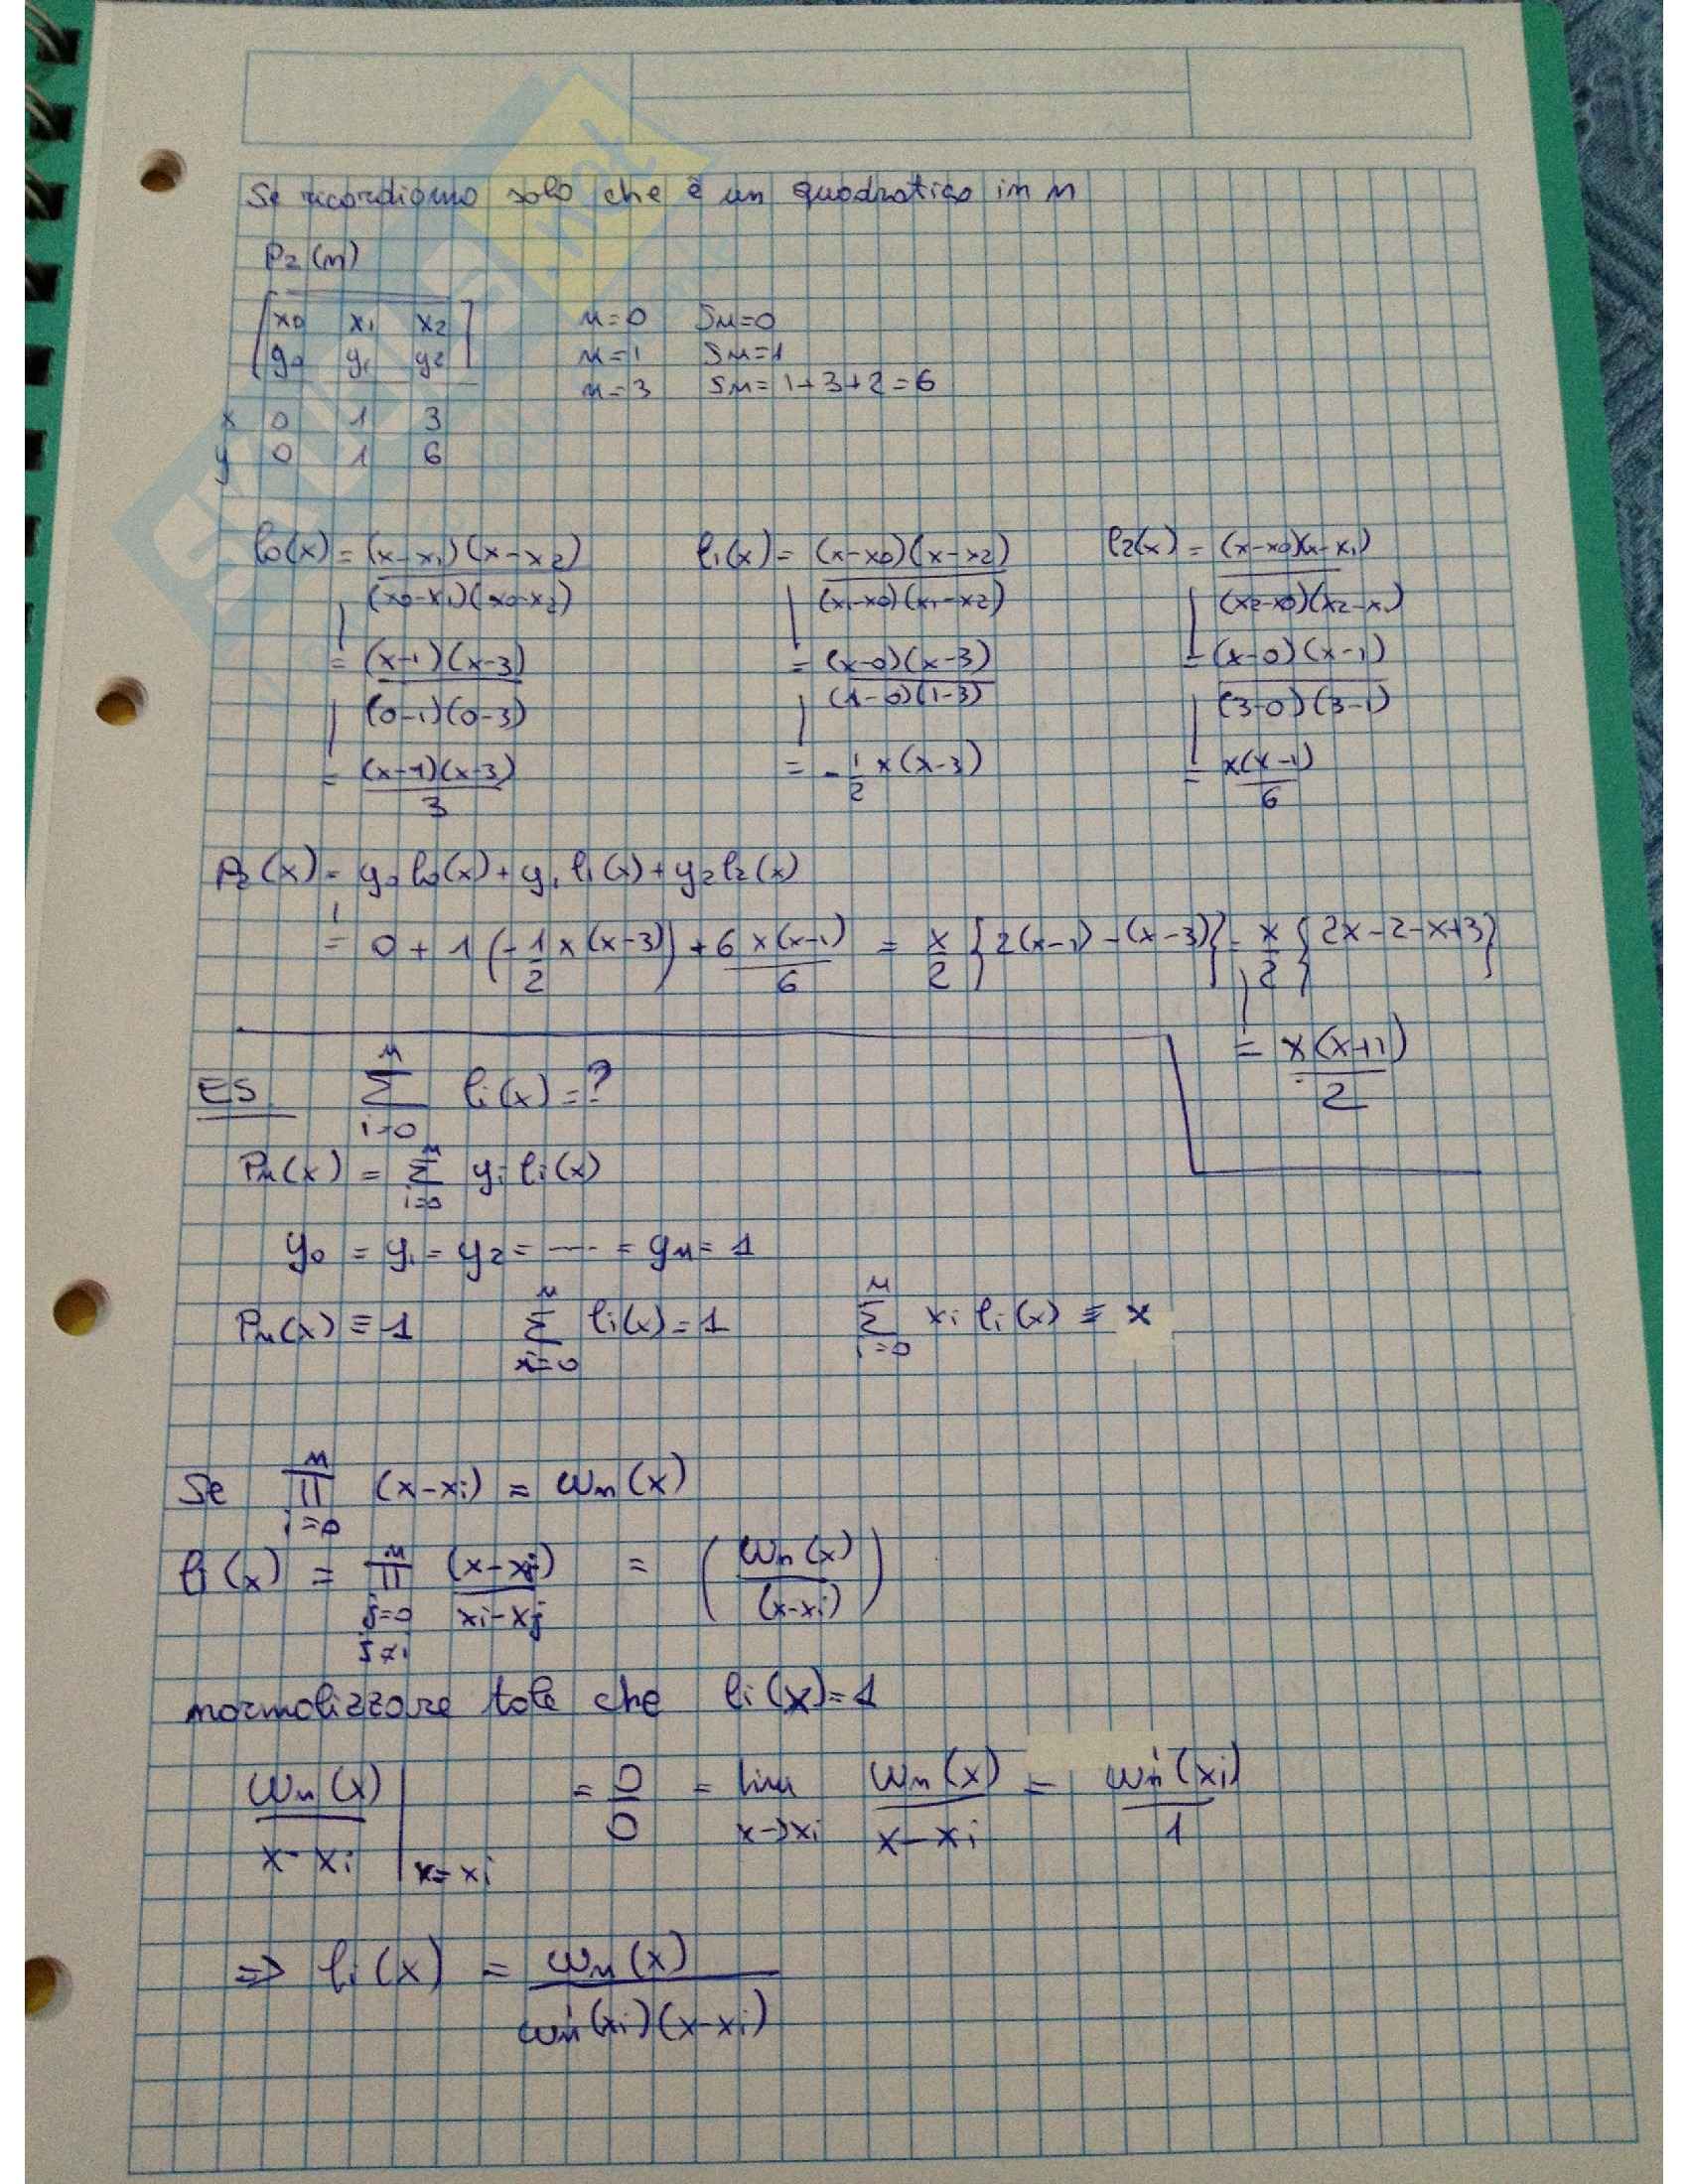 Se ricordiamo solo che è un quadratico in n
P2(n)
[x0 x1 x2] n=0 Sn=0
[y0 y1 y2] n=1 Sn=1
n=3 Sn=1+3+2=6
x 0 1 3
y 0 1 6
l0(x) = (x-x1)(x-x2) / (x0-x1)(x0-x2) l1(x) = (x-x0)(x-x2) / (x1-x0)(x1-x2) l2(x) = (x-x0)(x-x1) / (x2-x0)(x2-x1)
= (x-1)(x-3) / (0-1)(0-3) = (x-0)(x-3) / (1-0)(1-3) = (x-0)(x-1) / (3-0)(3-1)
= (x-1)(x-3) / 3 = -1/2 x(x-3) = x(x-1) / 6
P2(x) = y0 l0(x) + y1 l1(x) + y2 l2(x)
= 0 + 1 (-1/2 x(x-3)) + 6 x(x-1)/6 = x/2 {2(x-1)-(x-3)} = x/2 {2x-2-x+3}
= x(x+1) / 2
ES ∑_{i=0}^{n} li(x) = ?
Pn(x) = ∑_{i=0}^{n} yi li(x)
y0 = y1 = y2 = ---- = yn = 1
Pn(x) ≡ 1 ∑_{i=0}^{n} li(x) = 1 ∑_{i=0}^{n} xi li(x) ≡ x
Se ∏_{i=0}^{n} (x-xi) = ωn(x)
li(x) = ∏_{j=0, j≠i}^{n} (x-xj) / xi-xj = (ωn(x) / (x-xi))
normalizzare tale che li(x)=1
ωn(x) / x-xi |x=xi = 0/0 = lim x→xi ωn(x) / x-xi = ωn'(xi) / 1
=> li(x) = ωn(x) / ωn'(xi)(x-xi)